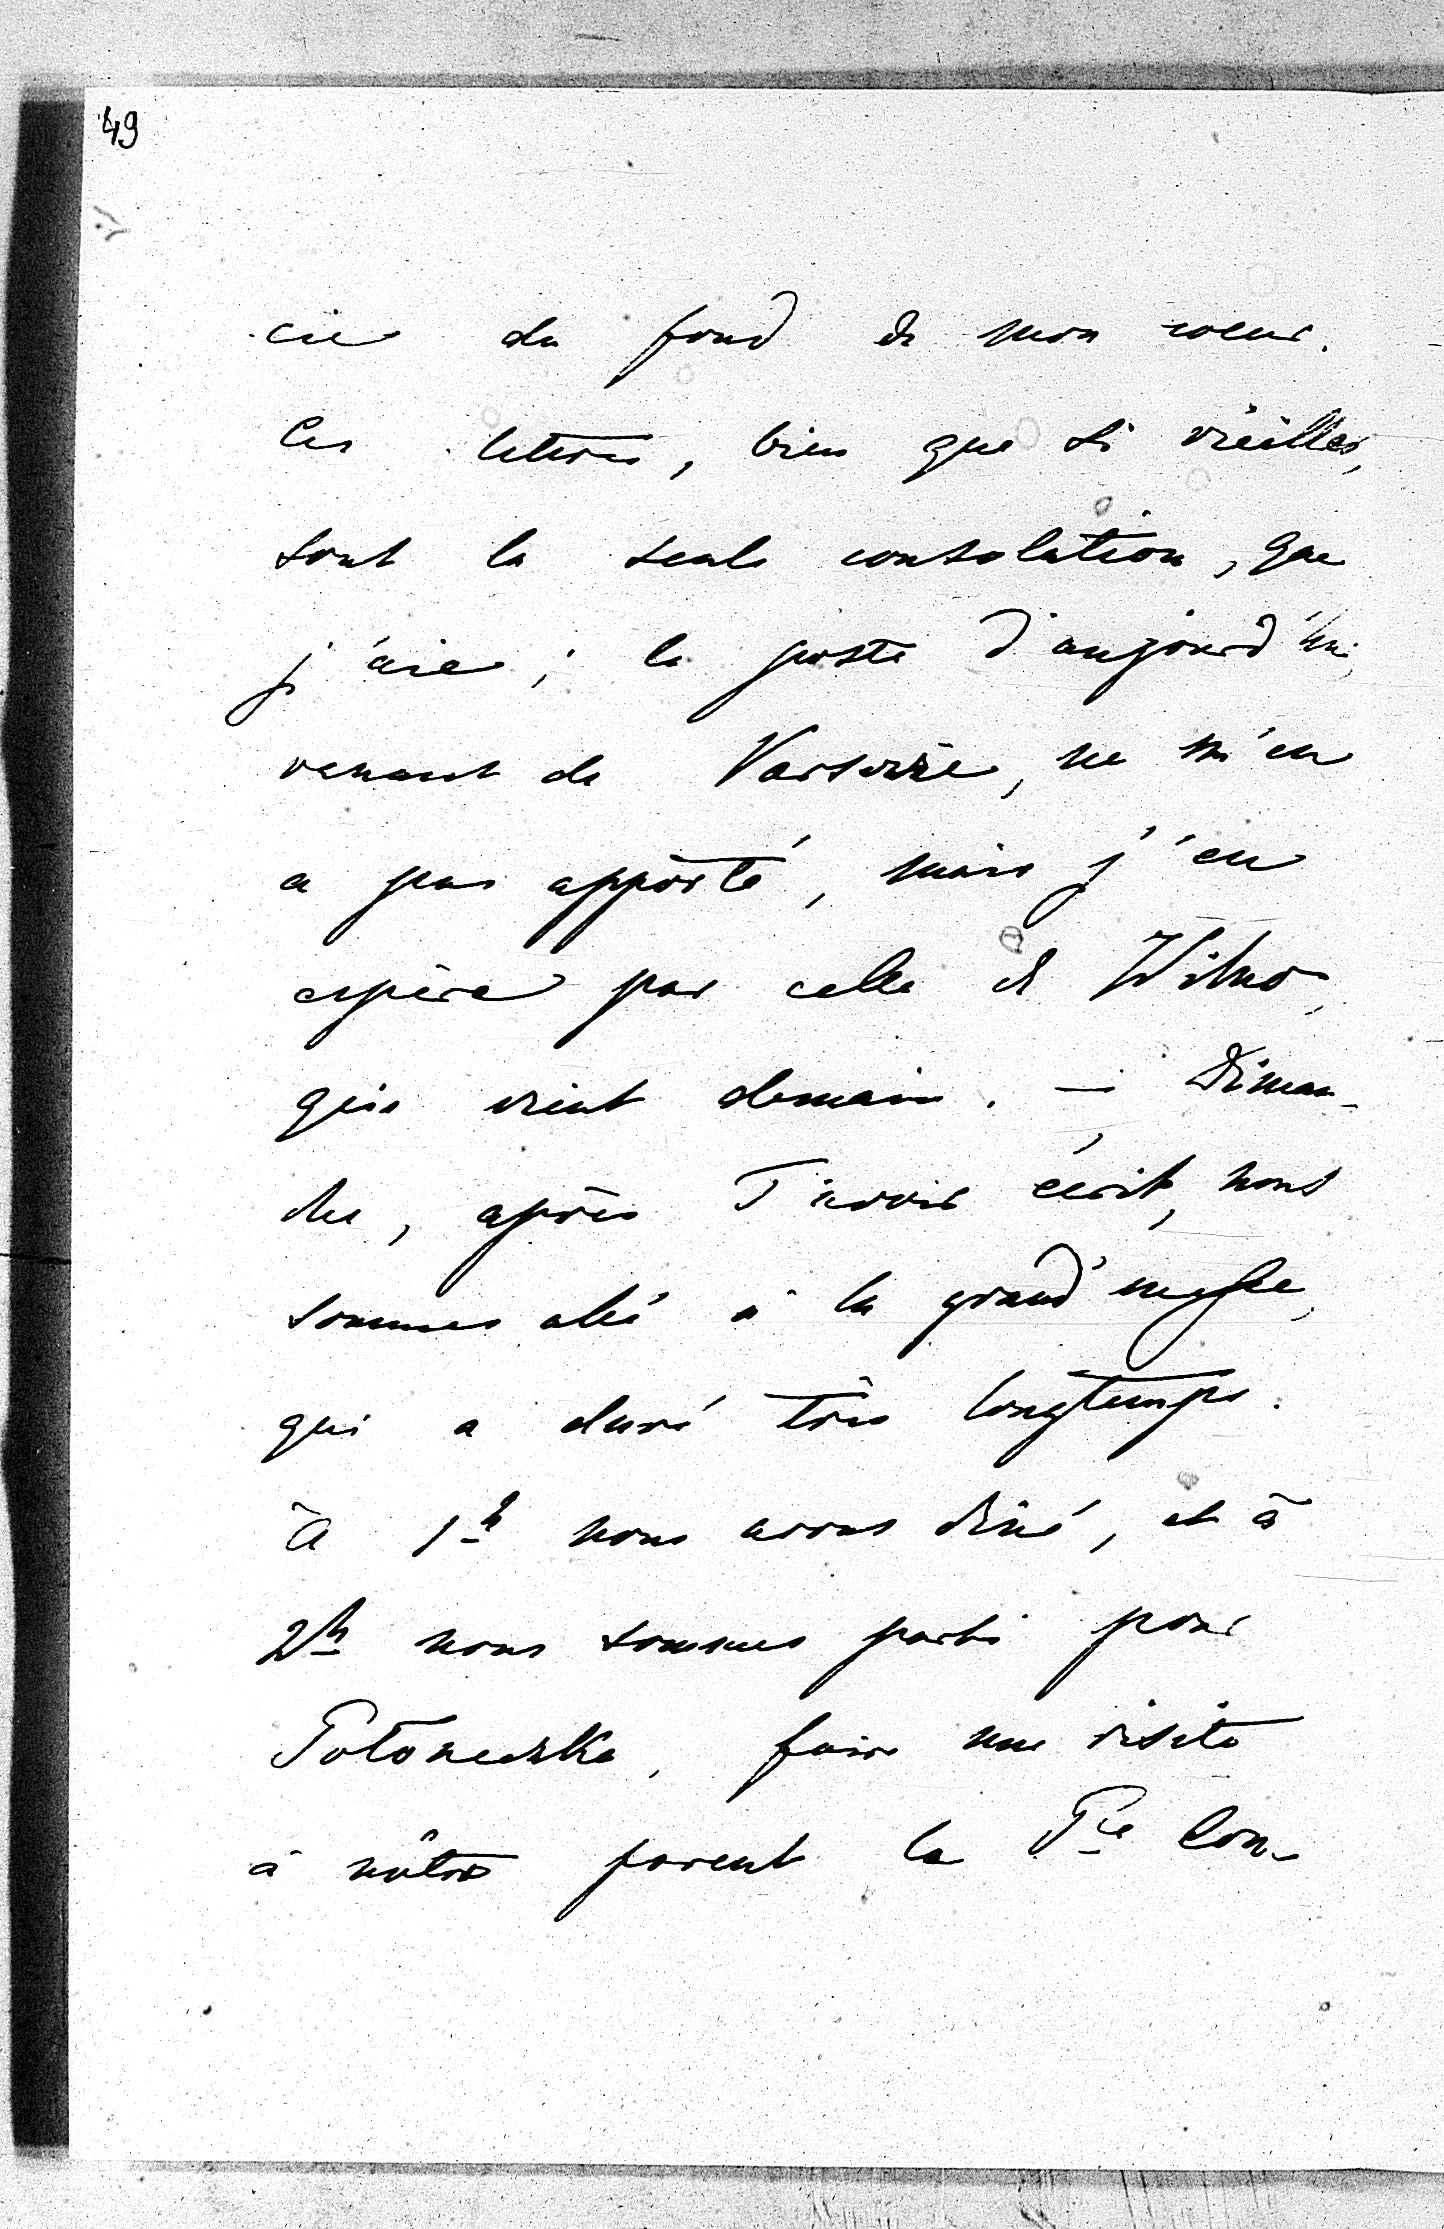 49
cie du fond de mon coeur.
Ces lettres, bien que si vieilles,
sont la seule consolation, que
j'aie; la poste d'aujourd'hui,
venant de Varsovie, ne m'en
a pas apporté, mais j'en
espère par celle de Wilno,
qui vient demain. — Diman-
che, après T'avoir écrit, nous
sommes allé à la grand'messe,
qui a duré très longtemps.
À 1h nous avons diné, et à
2h nous sommes parti pour
faire une visite
à nôtre parent la Pce Con-